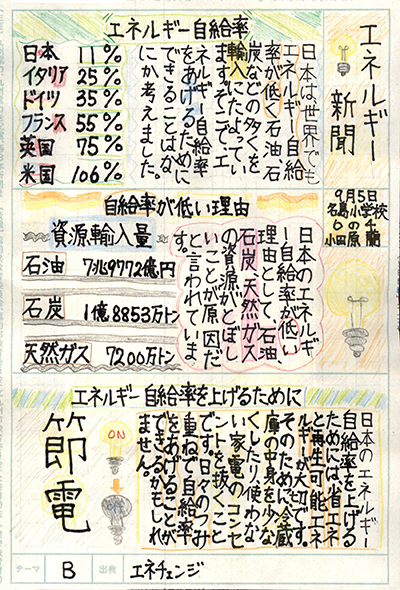 エネルギー新聞
9月5日
名島小学校
6の4
小田原蘭
エネルギー自給率
日本は、世界でも
エネルギー自給
率が低く石油石
炭などの多くを
輸入にたよってい
ます。そこでエ
ネルギー自給率
をあげるために
できることはな
にか考えました。
日本 11%
イタリア 25%
ドイツ 35%
フランス 55%
英国 75%
米国 106%
自給率が低い理由
日本のエネルギ
ー自給率が低い
理由として、石油、
石炭、天然ガス
の資源がとぼし
いことが原因だ
と言われていま
す。
資源輸入量
石油 7兆9772億円
石炭 1億8853万トン
天然ガス 7200万トン
エネルギー自給率を上げるために
日本のエネルギー
自給率を上げる
ためには、省エネ
と再生可能エネ
ルギーが大切です。
そのために、冷蔵
庫の中身を少な
くしたり、使わな
い家電のコンセ
ントを抜くこと
です。日々のつみ
重ねで自給率
をあげることが
できるかもしれ
ません。
節電
ON
OFF
テーマ B 出典 エネチェンジ